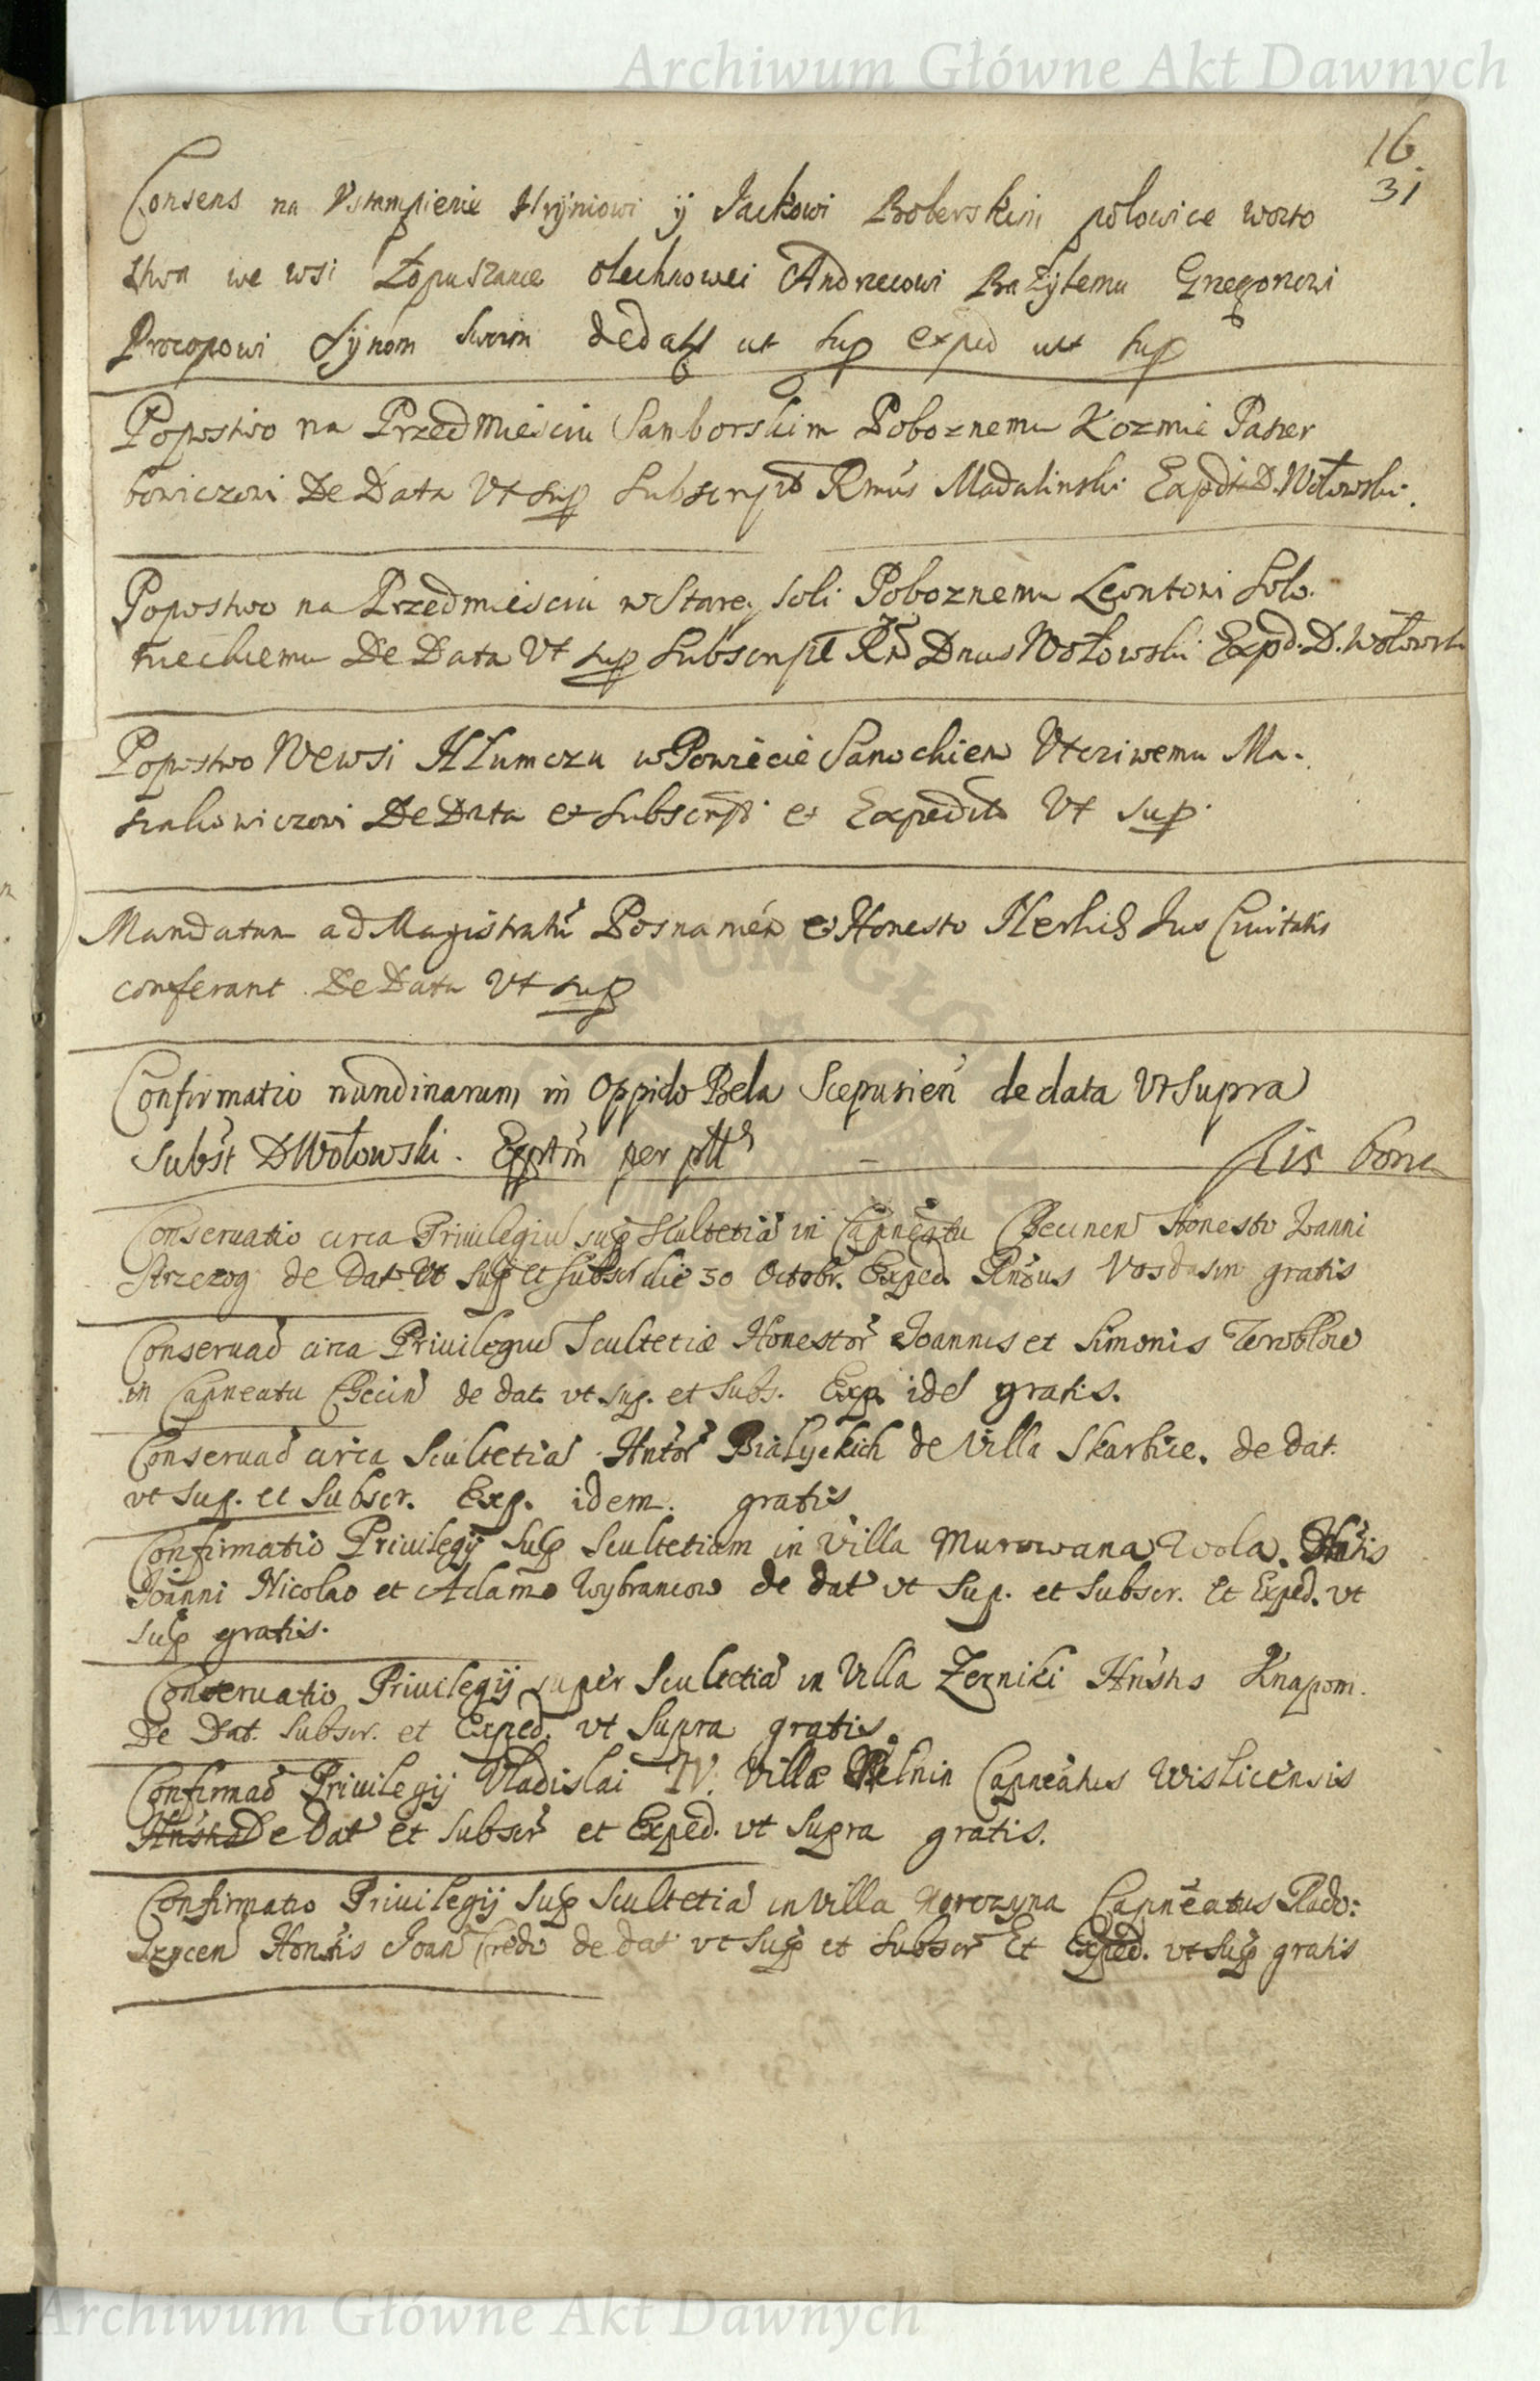 Archiwum Główne Akt Dawnych
16
31
Consens na Vstampienie Hryniowi ÿ Jackowi Boberskim połowice woito
stwa we wsi Łopuszance Olechnowei Andrzeiowi Bazÿlemu Gregorowi
Procopowi Sÿnom swoim de data ut sup exped ut sup
Popostwo na Przedmiesciu Samborskim Poboznemu Kozmie Paster
bowiczowi De Data Vt sup Subscript Rmus Madalinski Expdt D. Wołowski.
Popowstwo na Przedmiesciu w Starey Soli Poboznemu Leontowi Solo.
nieckiemu De Data Vt sup Subscript Rnd Dnus Wołowski Expd. D. Wołowski
Popowstwo We wsi Hłumczu w Powiecie Sanockiem Vtcziwemu Ma.
szakowiczowi De Data et Subscript et Expedit Vt sup.
Mandatum ad Magistratu Posnanien Honesto Ius Ciuitatis
conferant De Data Vt sup
Confirmatio nundinarum in Oppido Bela Scepusien de data Vt Supra
Subst D Wołowski. per
Conseruatio circa Priuilegiu sup Scultetia in Capneatu Checinen Honesto Ioanni
Strzezog de Dat. Vt Sup et Subscr die 30 Octobr. Exped. gratis
Conseruao circa Priuilegiu Scultetiæ Honestor Joannis et Simonis
in Capneatu Checin de dat. vt sup. et Subs. Exp. ide gratis.
Conseruao circa Scultetia Hntor Białyckich de Villa Skarbice. de dat.
vt sup. et Subscr. Exp. idem. gratis
Confirmatio Priuilegij Sup Scultetiam in Villa Murowana Wola. Hntis
Joanni Nicolao et Adamo Wybrancow de dat vt Sup. et Subscr. Et Exped. vt
Sup gratis.
Conseruatio Priuilegij super Scultetia in Villa Zerniki Hnstis Knapom.
De Dat. Subscr. et Exped. vt Supra gratis.
Confirmao Priuilegij Vladislai IV. Villæ Capneatus Wislicensis
De Dat et Subscr et Exped. vt Supra gratis.
Confirmatio Priuilegij Sup Scultetia in Villa Capneatus Rado:
szycen Honstis Joan de dat vt Sup et Subscr Et Exped. vt Sup gratis
Archiwum Główne Akt Dawnych